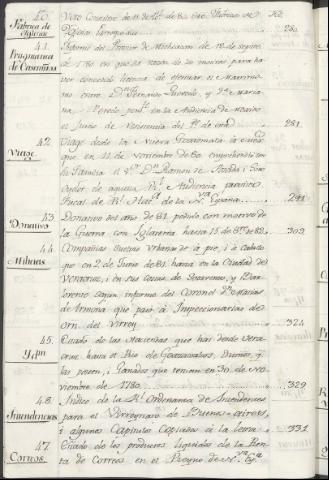 40.
Fabrica de
Iglesias
41.
Pragmatica
de Casamientos
Informe del Prior de Michoacan de 18 de
de 1780 en que da razon de los motivos para ha-
ver concedido licencia de efectuar el Matrimo-
nio entre Dn. Fernando y Da. Maria-
en la Audiencia de Mexico
el Juicio de Residencia del
281
42.
Viage
Viage desde la Nueva Guatemala à
que en 11 de Noviembre de 80 emprehendiò con
su Familia el Sr. Dn. Ramon de Posada i Soto
Oydor de aquella Rl. Audiencia para ser
Fiscal de Rl. Hazda. de la Nva. España
291
43.
Donativo
Donativo del año de 81 pedido con motivo de
la Guerra con Inglaterra hasta 15 de
303
44.
Milicias
Compañias Sueltas Urbanas de à pie, i à caballo
que en 2 de Junio de 81 havia en la Ciudad de
Veracruz, i en sus Costas de Sotavento, y Bar-
lovento segun informe del Coronel Dn. Matias
de Armona que pasò à Inspeccionarlas de
orn. del Virrey
324
45.
Ydm
Estado de las Haciendas que hai desde Vera-
cruz hasta el Rio de Goazacoalcos, Dueños, q.
las poseen, i Ganados que tenian en 30. de No-
viembre de 1780
329
46.
Intendencias
Indice de la Rl. Ordenanza de Intendentes
para el Virreynato de Buenos-aires,
i algunos Capitulos Copiados à la letra
331
47.
Correos
Estado de los productos liquidos de la Ren-
ta de Correos en el Reyno de Na. Ea.